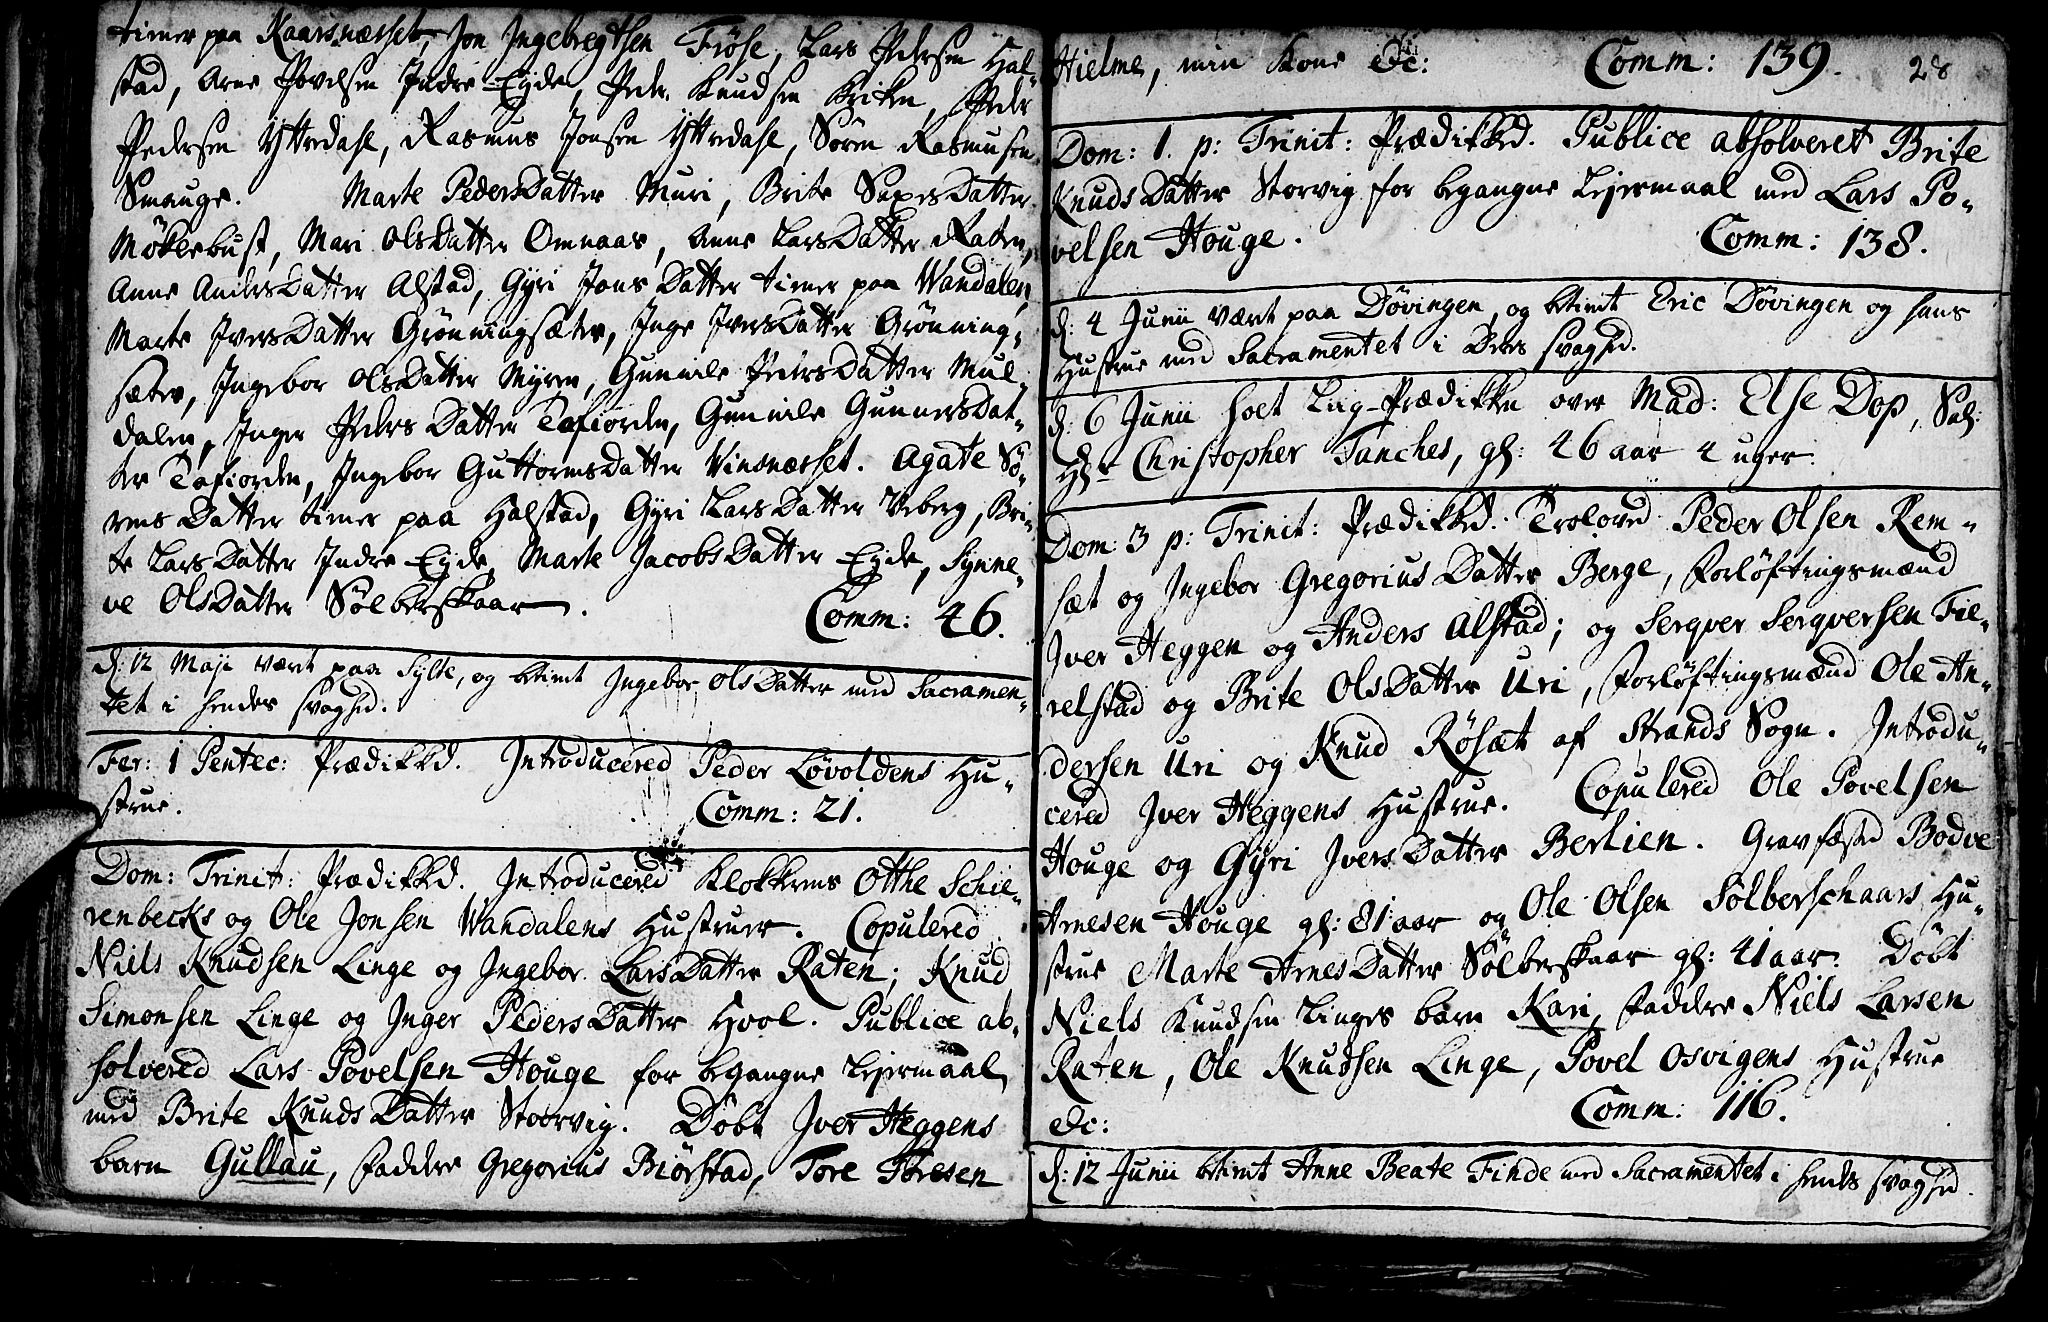 tiener paa Kaarsnæsset, Jon Ingebregtsen Fiøse, Lars Pedersen Hal-
stad, Arne Povelsen Indre-Eyde, Peder Knudsen Kriken, Peder
Pedersen Ytterdahl, Rasmus Jonsen Ytterdahl, Sören Rasmusen
Smauge. Marte PedersDatter Muri, Brite DatterDatter
Möklebust, Mari OlsDatter Omnaas, Anne LarsDatter Raten,
Anne AndersDatter Alstad, Gÿri JonsDatter tiener paa Wandalen,
Marte IversDatter Grønningsæter, Inge IversDatter Grønning-
sæter, Ingebor OlsDatter Myren, Gunnile PedersDatter Mul-
dalen, Inger PedersDatter Tafiorden, Gunnile GunnersDat-
ter Tafiorden, Ingebor GuttormsDatter Vinsnæsset. Agate Sö-
rensDatter tiener paa Halstad, Gÿri LarsDatter Veberg, Bri-
te LarsDatter Indre-Eyde, Marte JacobsDatter Eyde, Synne-
ve OlsDatter Sölberskaar. Comm: 46.
d: 12 Maji været paa Sylte, og betient Ingebor OlsDatter med Sacramen-
tet i hendes svaghed.
Fer: 1 Pentec: Prædikked. Introducered Peder Løvoldens Hu-
strue. Comm: 21.
Dom: Trinit: Prædikked. Introducered Klokkerens Otthe Schie-
renbecks og Ole Jonsen Wandalens Hustruer. Copulered
Niels Knudsen Linge og Ingebor LarsDatter Raten; Knud
Simonsen Linge og Inger PedersDatter Hool. Publice ab-
solvered Lars Povelsen Houge for begangne Lejermaal
med Brite KnudsDatter Stoorvig. Döbt Iver Heggens
barn Gullau, Faddere Gregorius Biörstad, Tore Toresen
Hielme, min Kone &c: Comm: 139. 28
Dom: 1. p: Trinit: Prædikked. Publice absolveret Brite
KnudsDatter Storvig for begangne Lejermaal med Lars Po-
velsen Houge. Comm: 138.
d: 4 Junii været paa Døvingen, og betient Eric Døvingen og hans
Hustrue med Sacramentet i Deres svaghed.
d: 6 Junii holt Liig-Prædikken over Mad: Else Dop, Sal:
Hr Christopher Tanches, gl: 46 aar 4 uger.
Dom: 3 p: Trinit: Prædikked. Troloved Peder Olsen Rem-
sæt og Ingebor GregoriusDatter Berge, Forløftingsmænd
Iver Heggen og Anders Alstad; og Serqver Serqversen Fie-
relstad og Brite OlsDatter Uri, Forløftingsmænd Ole An-
dersen Uri og Knud Røsæt af Strands Sogn. Introdu-
cered Iver Heggens Hustrue. Copulered Ole Povelsen
Houge og Gÿri IversDatter Berlien. Gravfæsted Bodve
Arnesen Houge gl: 81 aar og Ole Olsen Sölberschaars Hu-
strue Marte ArnesDatter Sölberskaar gl: 41 aar. Döbt
Niels Knudsen Linges barn Kari, Faddere Niels Larsen
Raten, Ole Knudsen Linge, Povel Osvigens Hustrue
&c: Comm: 116.
d: 12 Junii betient Anne Beate Finde med Sacramentet i hendes svaghed.